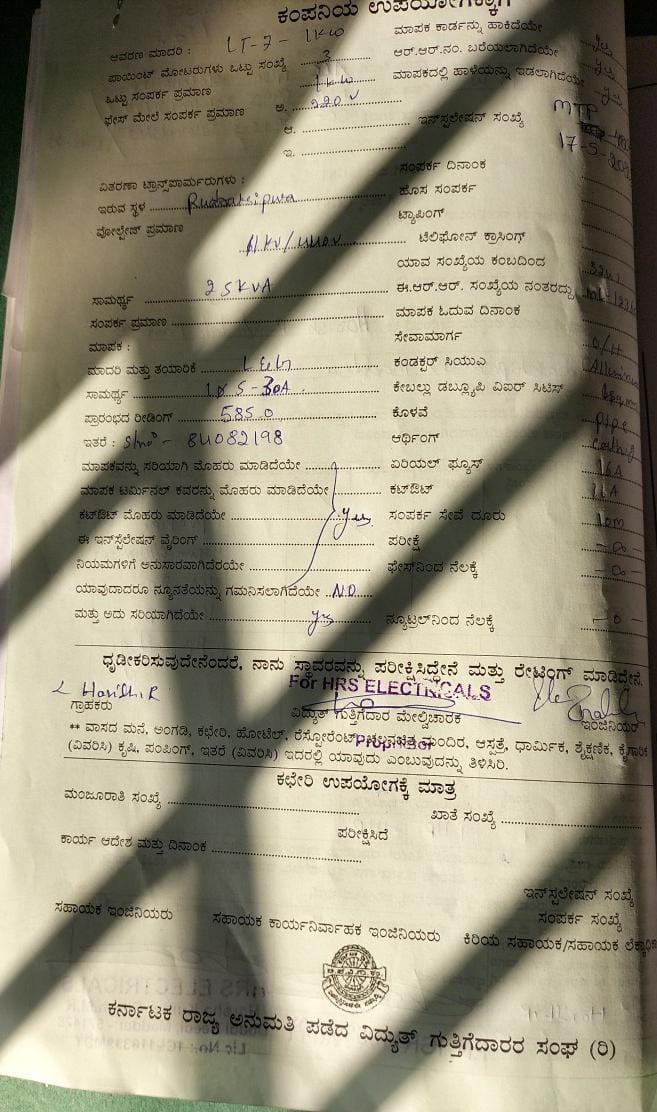 ಕಂಪನಿಯ ಉಪಯೋಗಕ್ಕಾಗಿ
ಮಾಪಕ ಕಾರ್ಡನ್ನು ಹಾಕಿದೆಯೇ yes
ಆವರಣ ಮಾದರಿ : LT-7-1KW ಆರ್.ಆರ್.ನಂ. ಬರೆಯಲಾಗಿದೆಯೇ yes
ಪಾಯಿಂಟ್ ಮೋಟರುಗಳು ಒಟ್ಟು ಸಂಖ್ಯೆ ಮಾಪಕದಲ್ಲಿ ಹಾಳೆಯನ್ನು ಇಡಲಾಗಿದೆಯೇ yes
ಒಟ್ಟು ಸಂಪರ್ಕ ಪ್ರಮಾಣ 1KW
ಫೇಸ್ ಮೇಲೆ ಸಂಪರ್ಕ ಪ್ರಮಾಣ ಅ. 220V
ಆ. ಇನ್‌ಸ್ಟಲೇಷನ್ ಸಂಖ್ಯೆ MTP
ಇ. 17-5-
ಸಂಪರ್ಕ ದಿನಾಂಕ
ವಿತರಣಾ ಟ್ರಾನ್ಸ್‌ಪಾರ್ಮರುಗಳು : ಹೊಸ ಸಂಪರ್ಕ
ಇರುವ ಸ್ಥಳ ಟ್ಯಾಪಿಂಗ್
ವೋಲ್ಟೇಜ್ ಪ್ರಮಾಣ 11KV/440V ಟೆಲಿಫೋನ್ ಕ್ರಾಸಿಂಗ್
ಯಾವ ಸಂಖ್ಯೆಯ ಕಂಬದಿಂದ
ಸಾಮರ್ಥ್ಯ 25KVA ಈ.ಆರ್.ಆರ್. ಸಂಖ್ಯೆಯ ನಂತರದ್ದು
ಸಂಪರ್ಕ ಪ್ರಮಾಣ ಮಾಪಕ ಓದುವ ದಿನಾಂಕ
ಮಾಪಕ : ಸೇವಾಮಾರ್ಗ O/H
ಮಾದರಿ ಮತ್ತು ತಯಾರಿಕೆ L&G ಕಂಡಕ್ಟರ್ ಸಿಯುಎ
ಸಾಮರ್ಥ್ಯ 5-30A ಕೇಬಲ್ಲು ಡಬ್ಲ್ಯೂಪಿ ವಿಐರ್ ಸಿಟಿಸ್
ಪ್ರಾರಂಭದ ರೀಡಿಂಗ್ 585.0 ಕೊಳವೆ pipe
ಇತರೆ : slno - 84082198 ಆರ್ಥಿಂಗ್
ಮಾಪಕವನ್ನು ಸರಿಯಾಗಿ ಮೊಹರು ಮಾಡಿದೆಯೇ ಏರಿಯಲ್ ಫ್ಯೂಸ್ 16A
ಮಾಪಕ ಟರ್ಮಿನಲ್ ಕವರನ್ನು ಮೊಹರು ಮಾಡಿದೆಯೇ ಕಟ್‌ಔಟ್ 16A
ಕಟ್‌ಔಟ್ ಮೊಹರು ಮಾಡಿದೆಯೇ yes ಸಂಪರ್ಕ ಸೇವೆ ದೂರು 10m
ಈ ಇನ್‌ಸ್ಟಲೇಷನ್ ವೈರಿಂಗ್ ಪರೀಕ್ಷೆ
ನಿಯಮಗಳಿಗೆ ಅನುಸಾರವಾಗಿದೆರಯೇ ಫೇಸ್‌ನಿಂದ ನೆಲಕ್ಕೆ
ಯಾವುದಾದರೂ ನ್ಯೂನತೆಯನ್ನು ಗಮನಿಸಲಾಗಿದೆಯೇ NO
ಮತ್ತು ಅದು ಸರಿಯಾಗಿದೆಯೇ yes ನ್ಯೂಟ್ರಲ್‌ನಿಂದ ನೆಲಕ್ಕೆ
ಧೃಡೀಕರಿಸುವುದೇನೆಂದರೆ, ನಾನು ಸ್ಥಾವರವನ್ನು ಪರೀಕ್ಷಿಸಿದ್ದೇನೆ ಮತ್ತು ರೇಟಿಂಗ್ ಮಾಡಿದೇನೆ.
For HRS ELECTRICALS
ಗ್ರಾಹಕರು ವಿದ್ಯುತ್ ಗುತ್ತಿಗೆದಾರ ಮೇಲ್ವಿಚಾರಕ ಇಂಜಿನಿಯರ್
Proprietor
** ವಾಸದ ಮನೆ, ಅಂಗಡಿ, ಕಛೇರಿ, ಹೋಟೆಲ್, ರೆಸ್ಟೋರೆಂಟ್, ಚಲನಚಿತ್ರ ಮಂದಿರ, ಆಸ್ಪತ್ರೆ, ಧಾರ್ಮಿಕ, ಶೈಕ್ಷಣಿಕ, ಕೈಗಾರಿಕೆ
(ವಿವರಿಸಿ) ಕೃಷಿ, ಪಂಪಿಂಗ್, ಇತರೆ (ವಿವರಿಸಿ) ಇದರಲ್ಲಿ ಯಾವುದು ಎಂಬುವುದನ್ನು ತಿಳಿಸಿರಿ.
ಕಛೇರಿ ಉಪಯೋಗಕ್ಕೆ ಮಾತ್ರ
ಮಂಜೂರಾತಿ ಸಂಖ್ಯೆ ಖಾತೆ ಸಂಖ್ಯೆ
ಪರೀಕ್ಷಿಸಿದೆ
ಕಾರ್ಯ ಆದೇಶ ಮತ್ತು ದಿನಾಂಕ
ಇನ್‌ಸ್ಟಲೇಷನ್ ಸಂಖ್ಯೆ
ಸಂಪರ್ಕ ಸಂಖ್ಯೆ
ಸಹಾಯಕ ಇಂಜಿನಿಯರು ಸಹಾಯಕ ಕಾರ್ಯನಿರ್ವಾಹಕ ಇಂಜಿನಿಯರು ಕಿರಿಯ ಸಹಾಯಕ/ಸಹಾಯಕ
ಕರ್ನಾಟಕ ರಾಜ್ಯ ಅನುಮತಿ ಪಡೆದ ವಿದ್ಯುತ್ ಗುತ್ತಿಗೆದಾರರ ಸಂಘ (ರಿ)